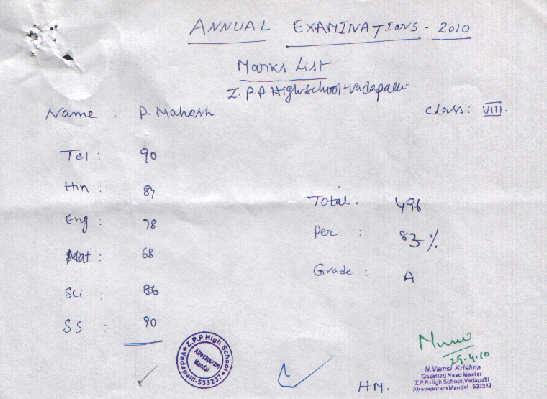 ANNUAL EXAMINATIONS - 2010
Marks List
Z.P.P High school
Name : P. Mahesh
Class : VIII
Tel : 90
Hin : 87
Eng : 78
Mat : 68
Sci : 86
SS : 90
Total : 496
Per : 83%
Grade : A
Z.P.P High School
29.4.10
HM.
N.Vamsi Krishna
Gazetted Head Master
Z.P.P High School,